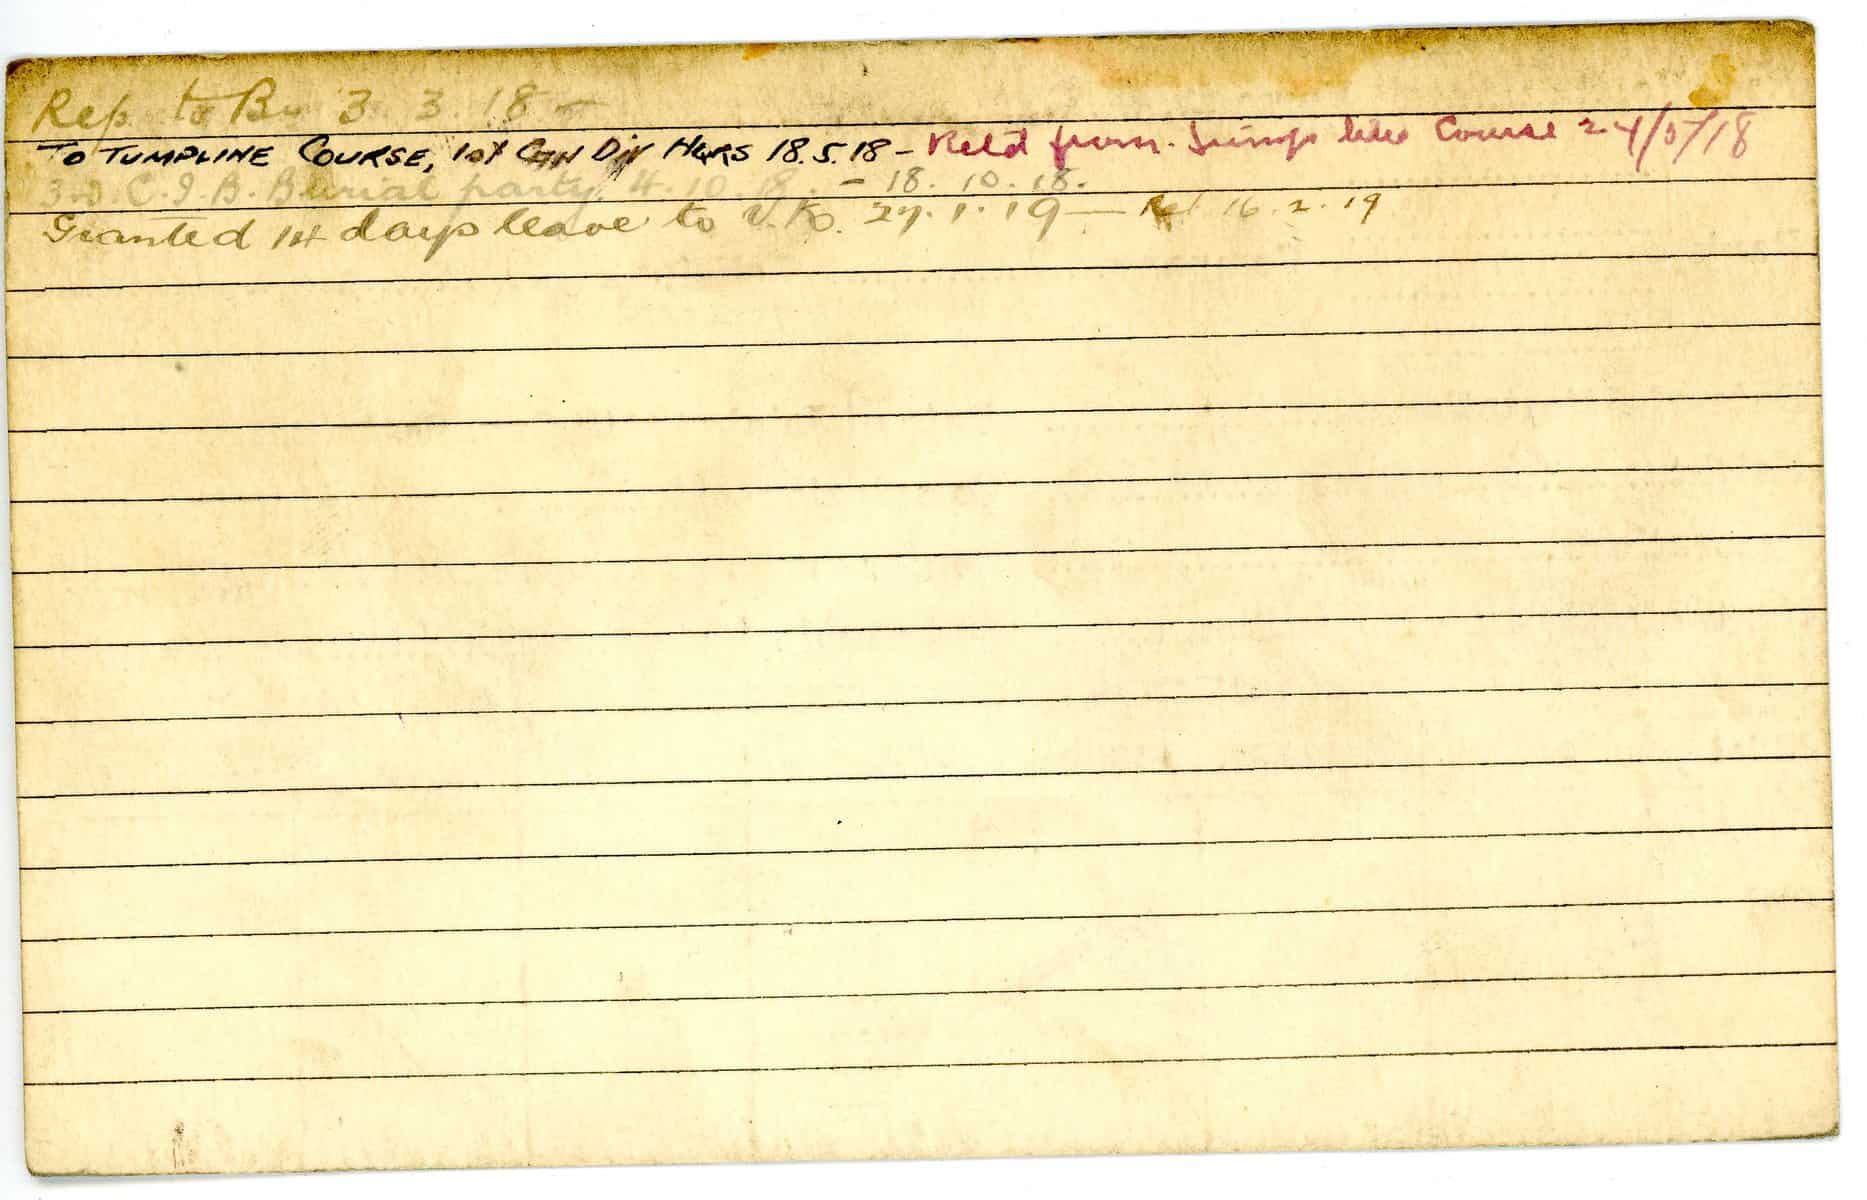 Rep. to Bn 3. 3. 18 –
TO TUMPLINE COURSE, 1st CDN DIV HQRS 18.5.18 – Ret'd from Jump line Course 24/5/18
3rd C.I.B. Burial party. 4.10.18. – 18.10.18.
Granted 14 days leave to U.K. 27.1.19 — Ret 16.2.19